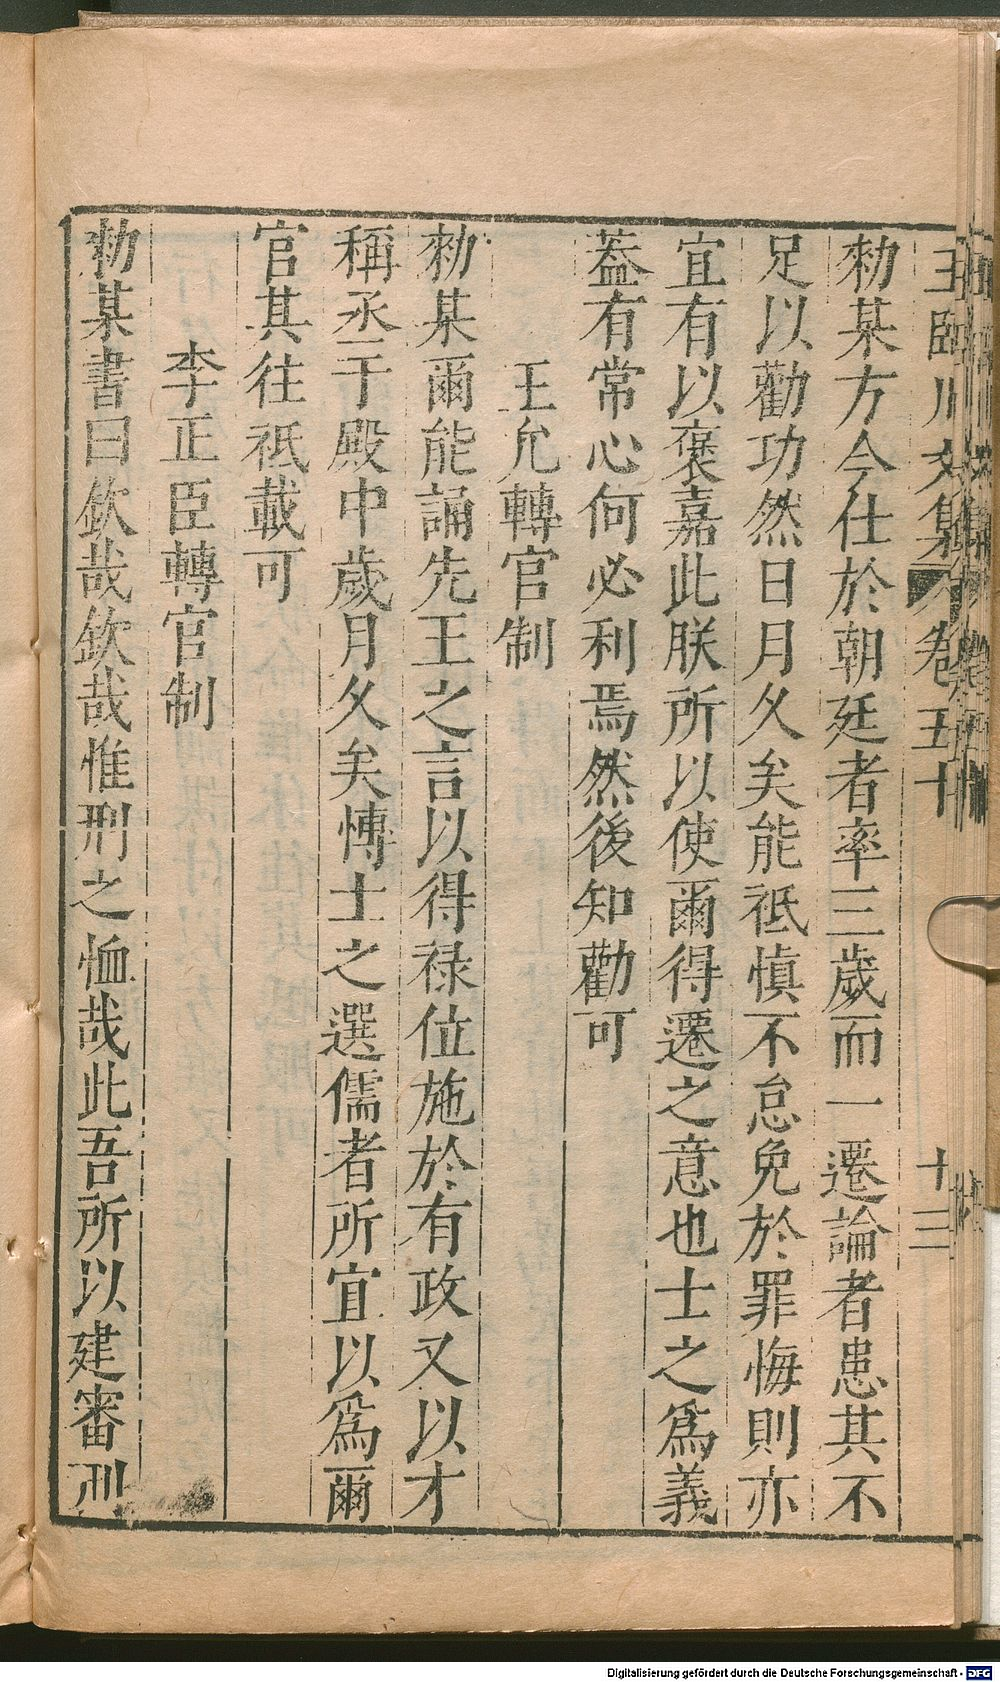 王臨川文集 卷五十 十三
勑某方今仕於朝廷者率三歲而一遷論者患其不
足以勸功然日月久矣能祗慎不怠免於罪悔則亦
宜有以褒嘉此朕所以使爾得遷之意也士之爲義
蓋有常心何必利焉然後知勸可
王允轉官制
勑某爾能誦先王之言以得祿位施於有政又以才
稱丞于殿中歲月久矣慱士之選儒者所宜以爲爾
官其往祗載可
李正臣轉官制
勑某書曰欽哉欽哉惟刑之恤哉此吾所以建審刑
Digitalisierung gefördert durch die Deutsche Forschungsgemeinschaft - DFG